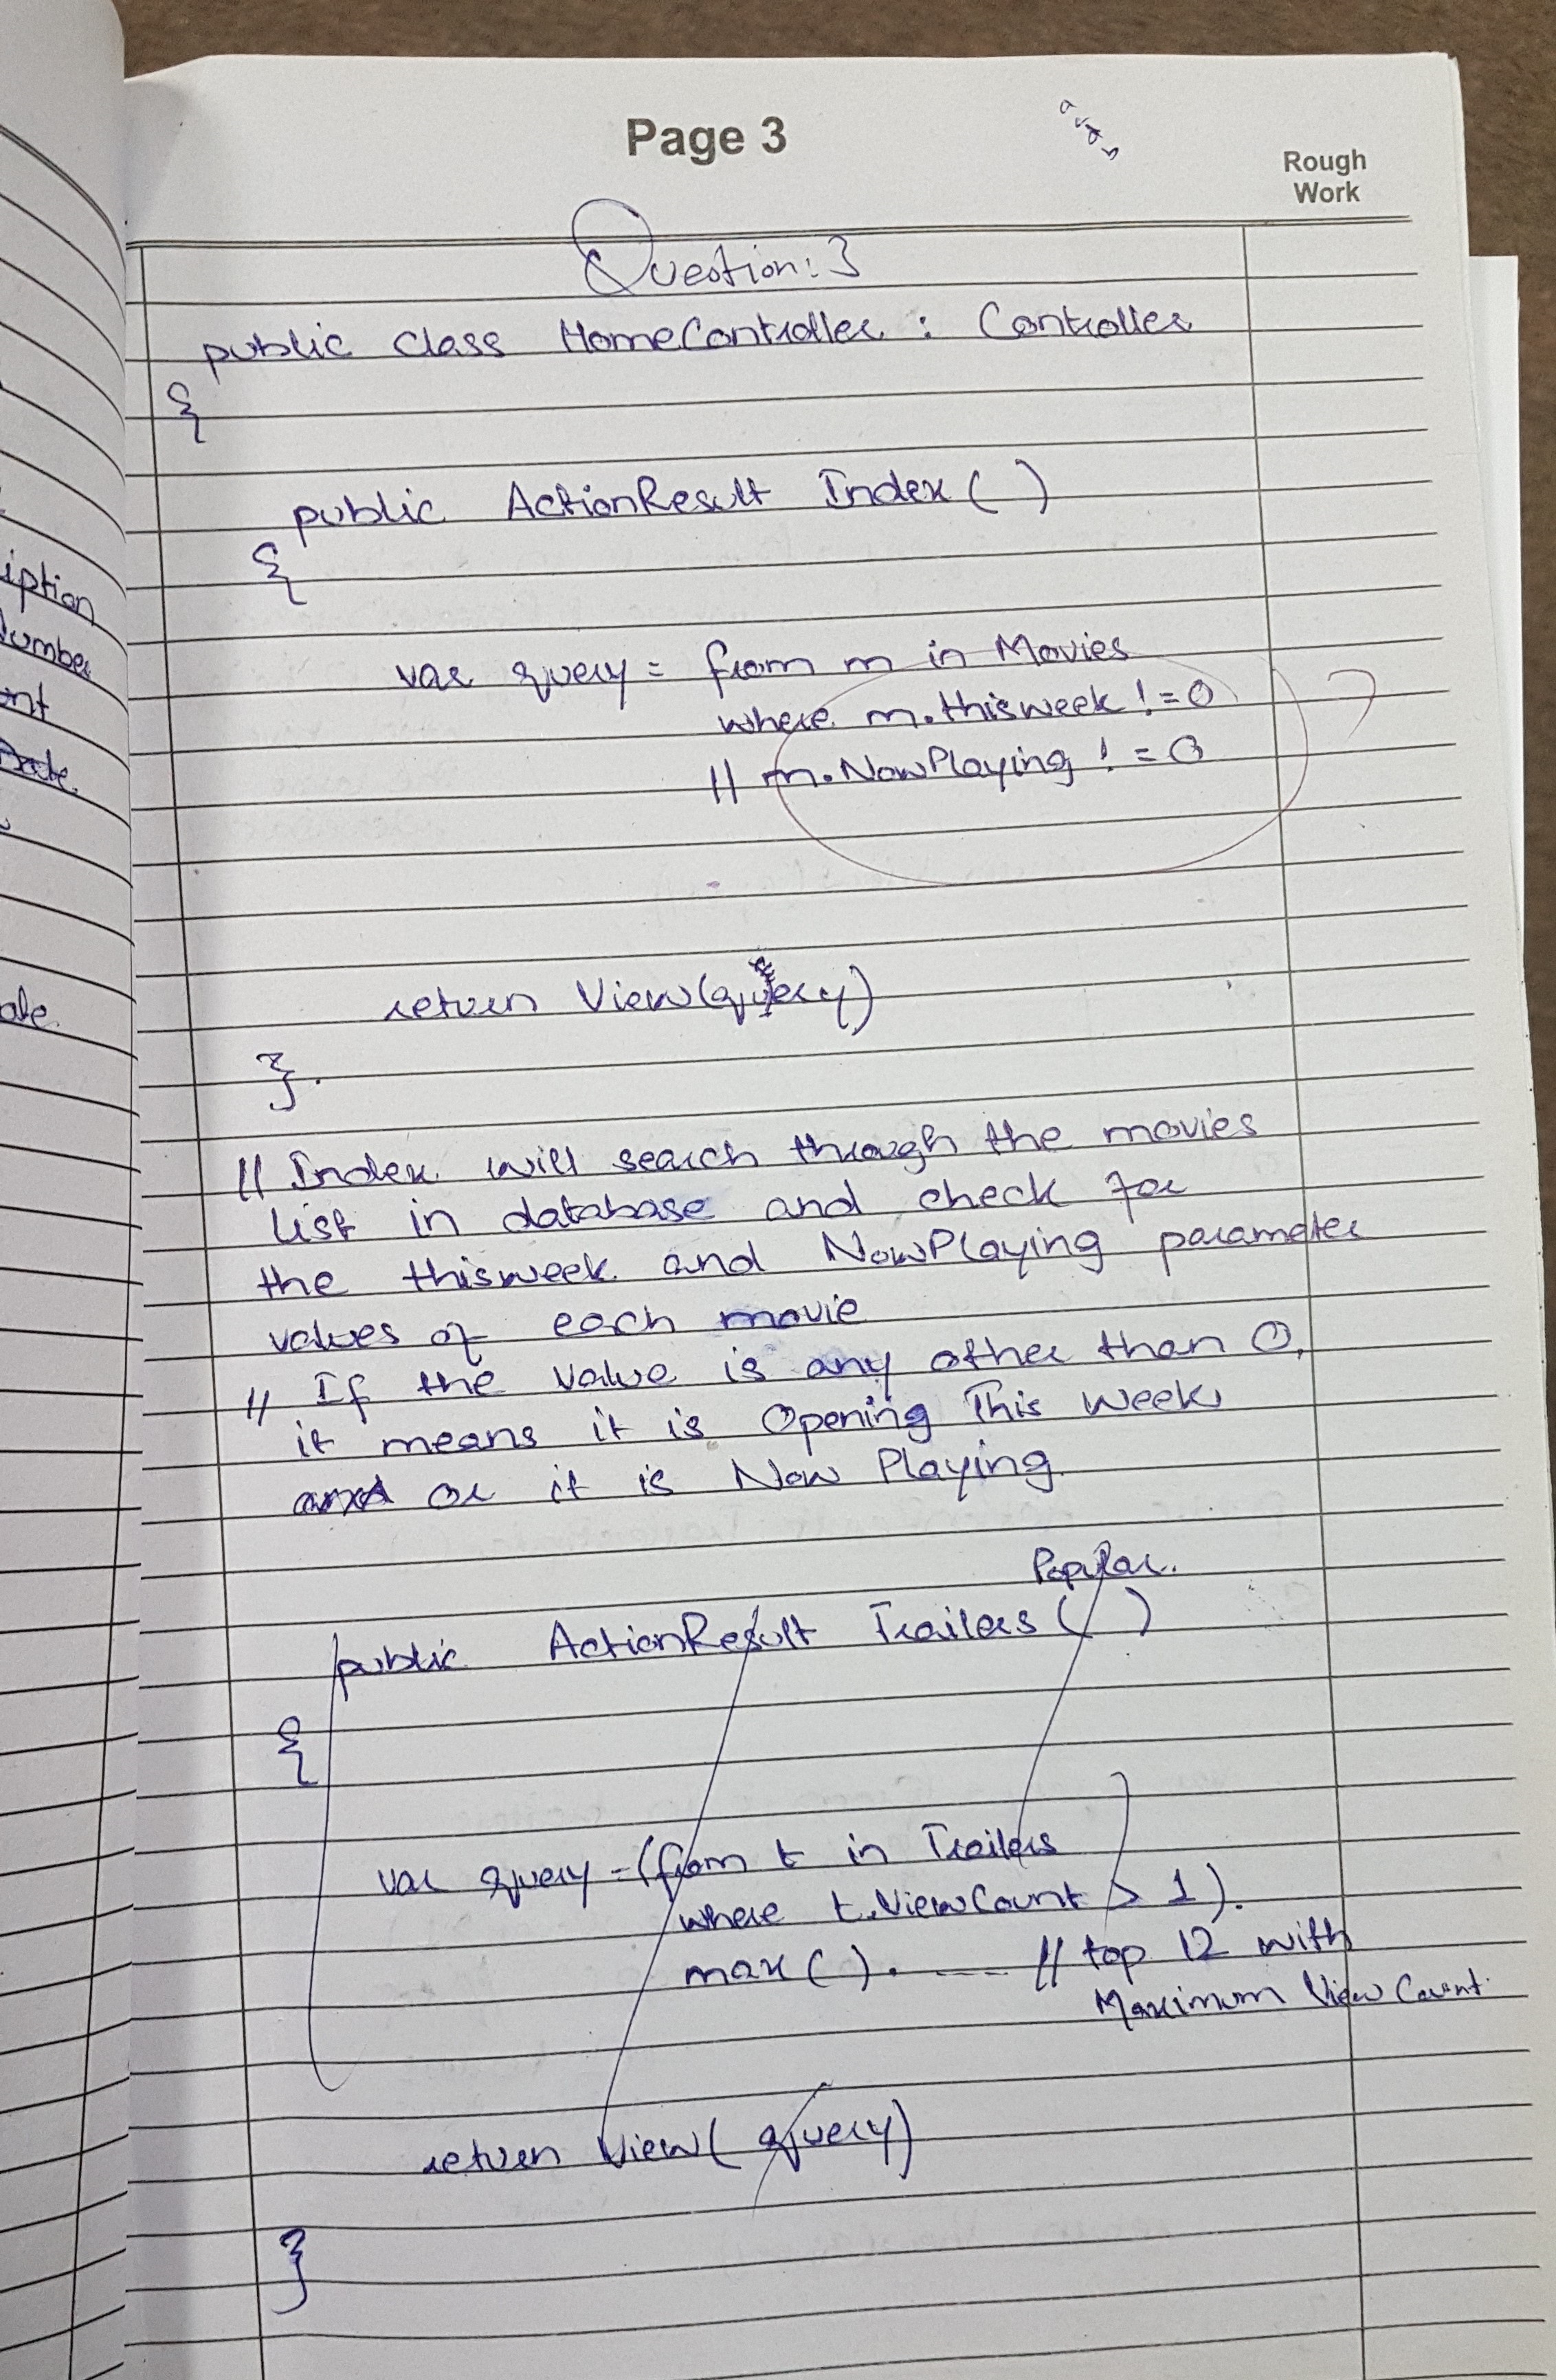 Page 3
Rough
Work
Question: 3
public class HomeController : Controller
{
public ActionResult Index ( )
{
var query = from m in Movies
where m.thisweek != 0
|| m.NowPlaying != 0
return View(query)
}.
// Index will search through the movies
list in database and check for
the thisweek and NowPlaying parameter
values of each movie
// If the value is any other than 0,
it means it is Opening This Week
and or it is Now Playing
Popular.
public ActionResult Trailers ( )
{
var query = (from t in Trailers
where t.ViewCount > 1).
max ( ). ---- // top 12 with
Maximum View Count.
return View( query)
}
iption
Number
Date.